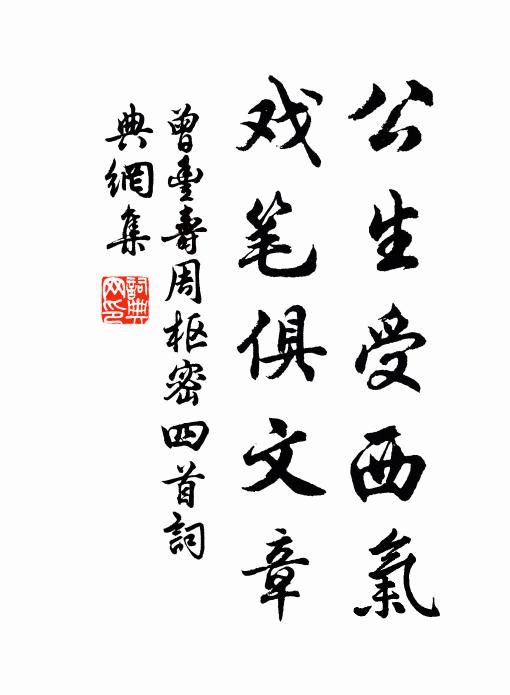 公生受西氣
戏笔俱文章
曾豊壽周枢密四首詞
典網集
詞典網印